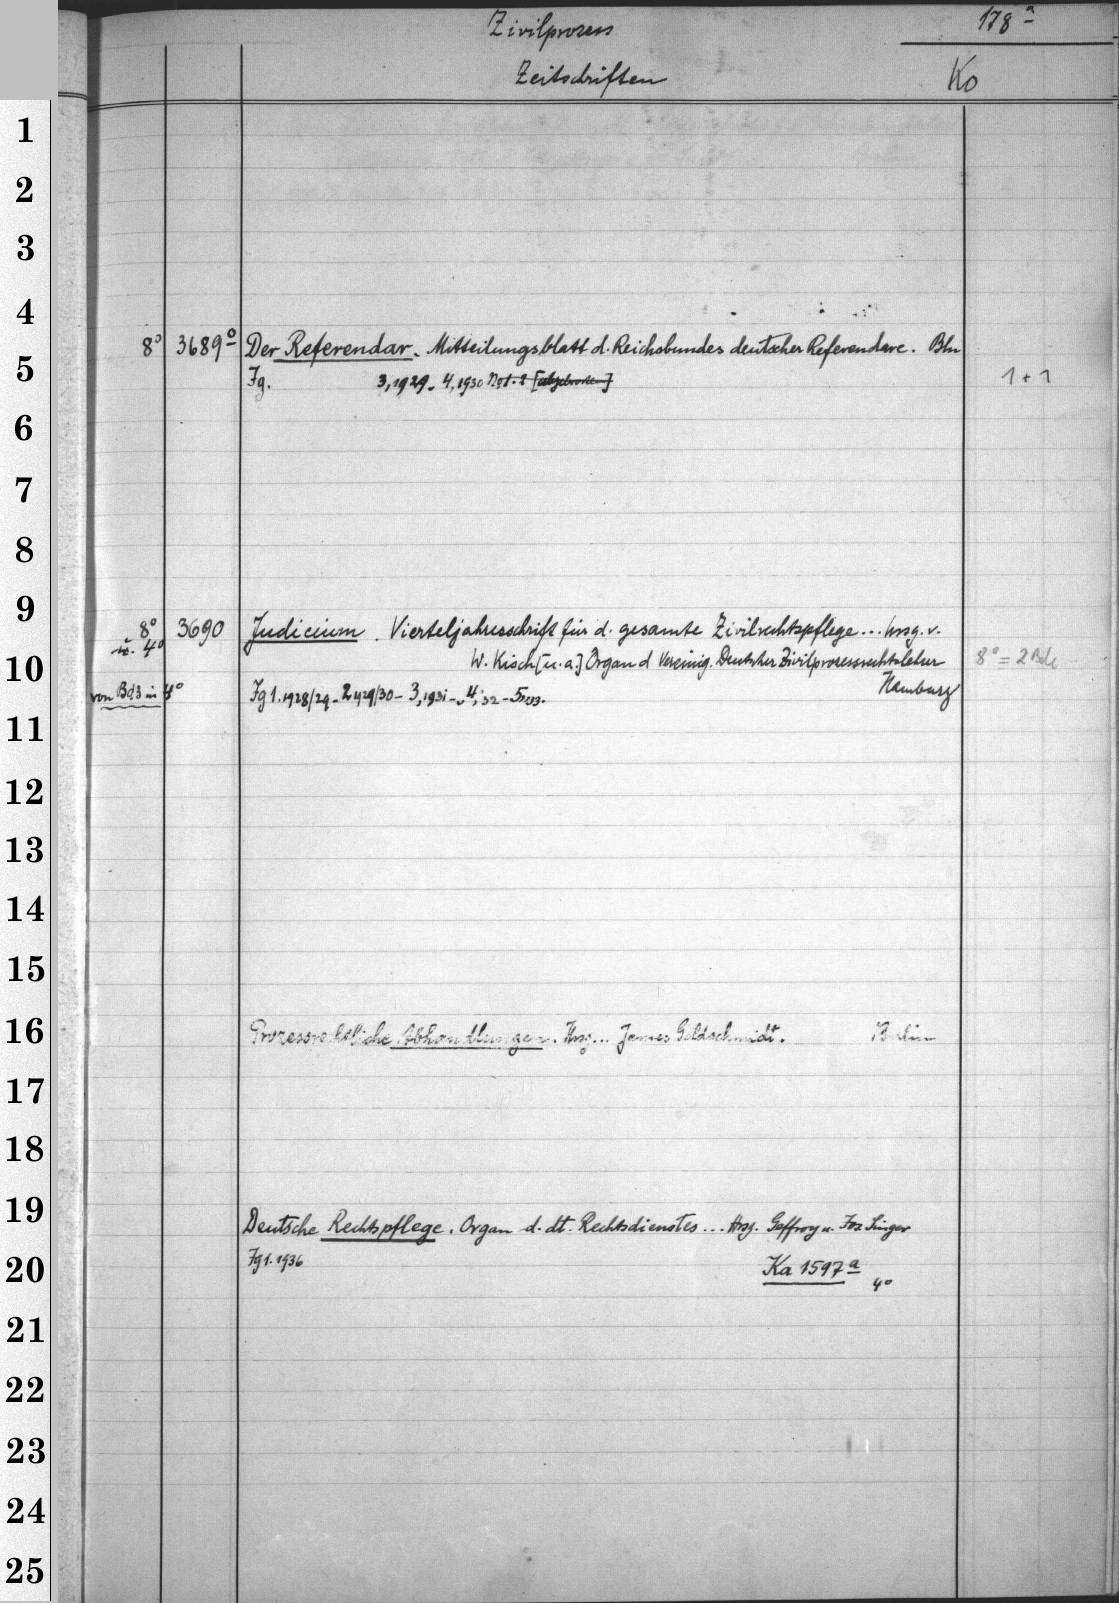 Zivilprozess
178 a
Zeitschriften
Ko
1
2
3
4
8° 3689° Der Referendar. Mitteilungsblatt d. Reichsbundes deutscher Referendare. Bln
5
Jg. 3,1929 - 4,1930 No 1-2 [abgebrochen] 1 + 1
6
7
8
9
8° 3690 Judicium. Vierteljahresschrift für d. gesamte Zivilrechtspflege... hrsg. v.
u. 4°
10
W. Kisch [u.a.] Organ d Vereinig. Deutscher Zivilprozessrechtslehrer 8° = 2 Bde
Hamburg
von Bd 3 in 4° Jg 1. 1928/29 - 2,1929/30 - 3,1931 - 4,'32 - 5,'33.
11
12
13
14
15
16
Prozessrechtliche Abhandlungen. Hrsg... James Goldschmidt. Berlin
17
18
19
Deutsche Rechtspflege. Organ d. dt. Rechtsdienstes... Hrsg. Geffroy u. Jos. Singer
Jg 1. 1936
20
Ka 1597 a 4°
21
22
23
24
25